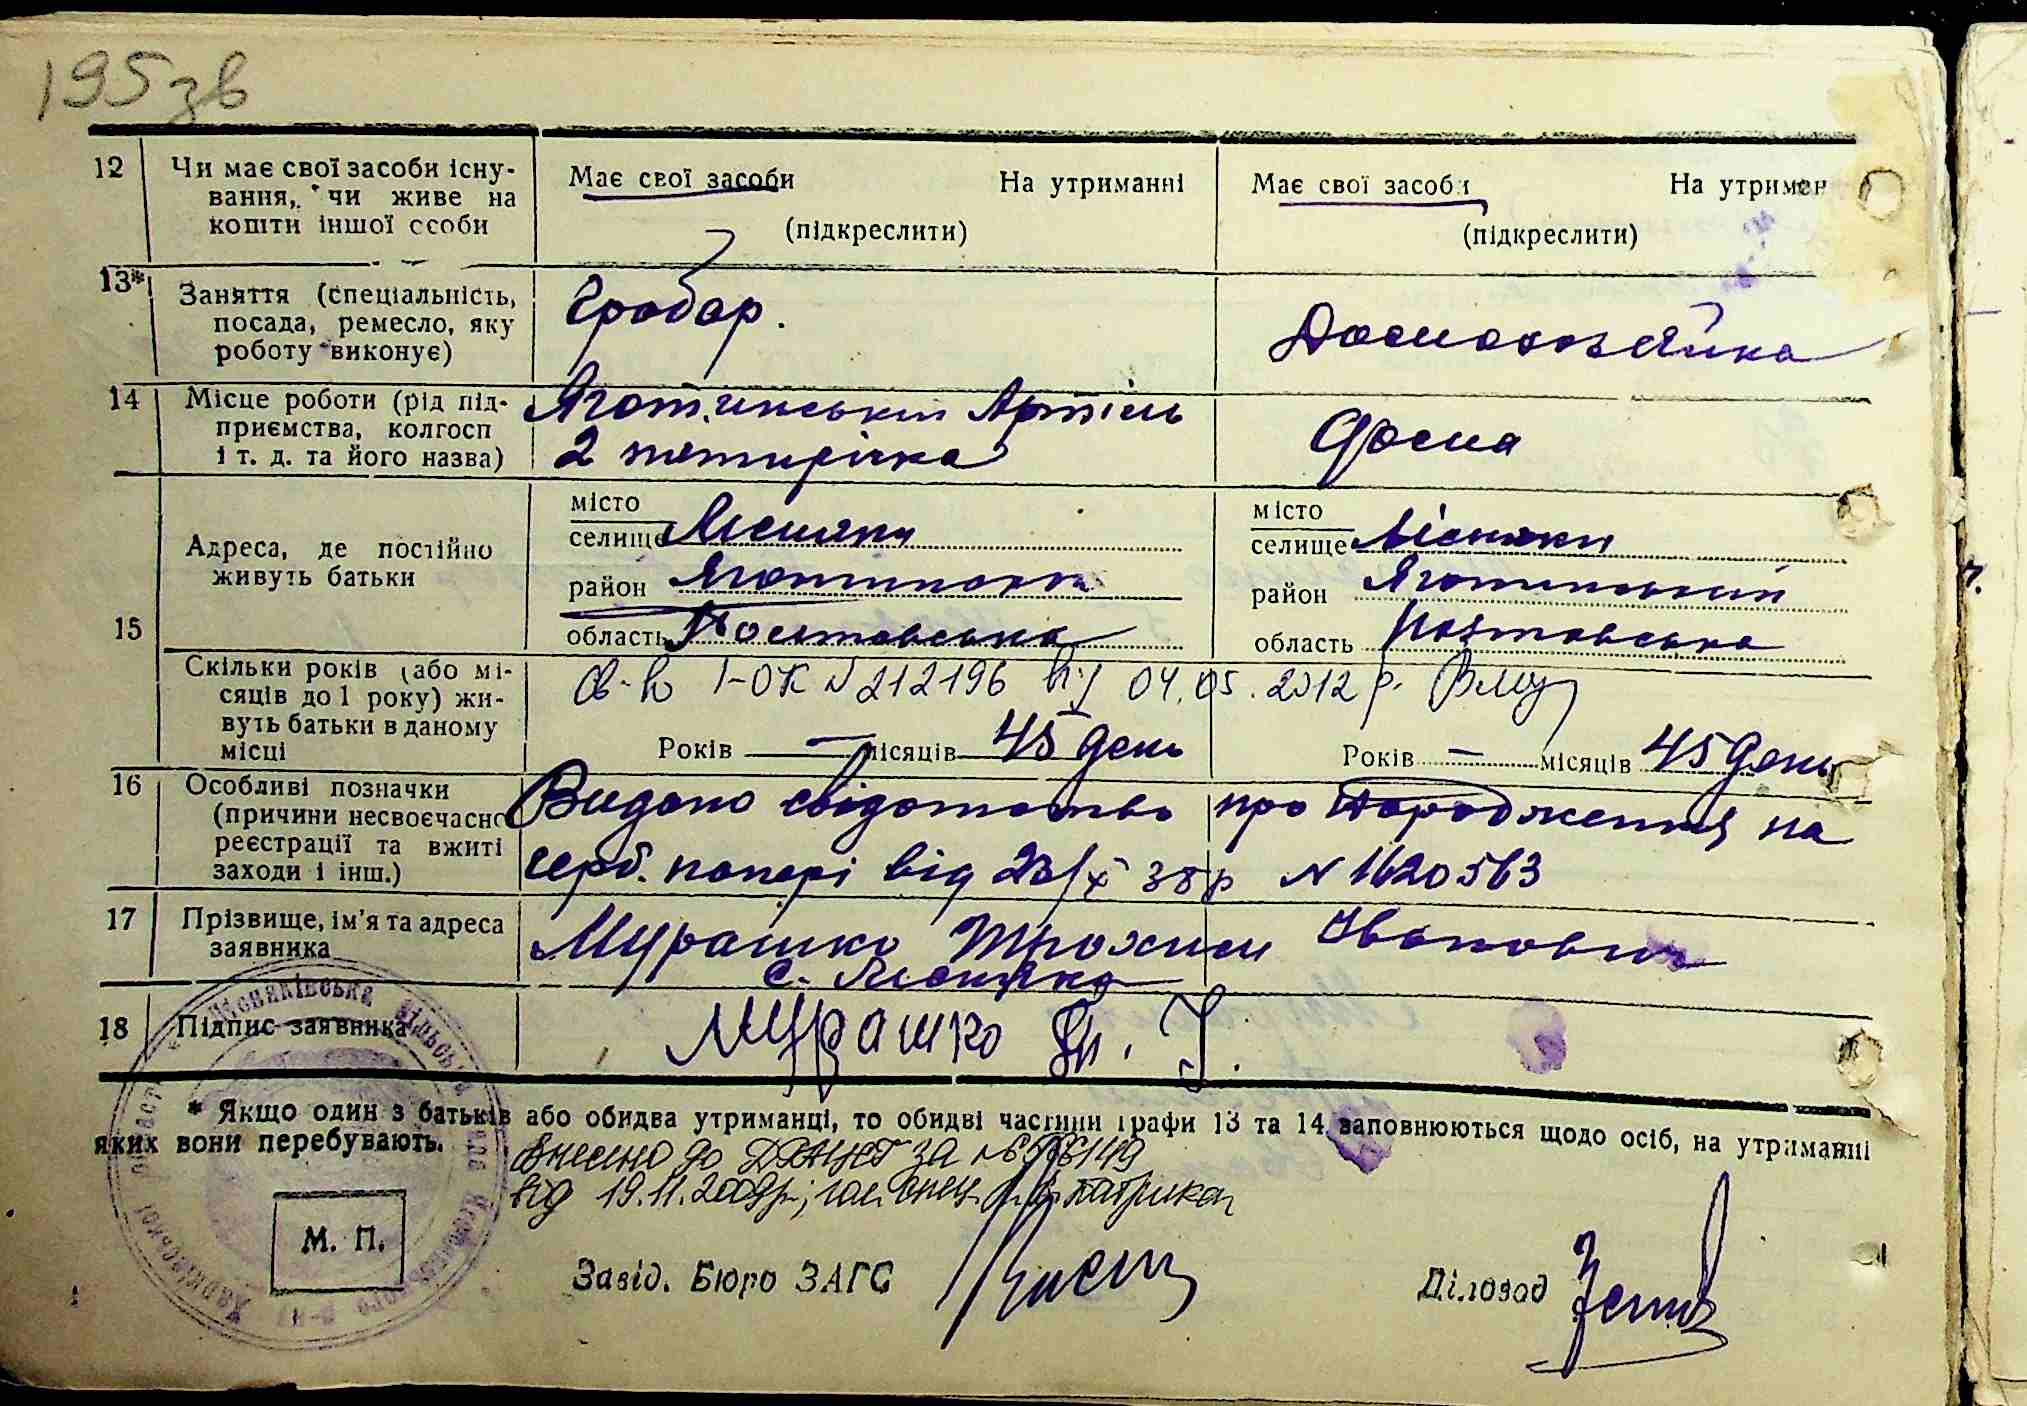 195 зв
12 Чи має свої засоби існу-
вання, чи живе на
кошти іншої особи
Має свої засоби На утриманні
(підкреслити)
Має свої засоби На утриман
(підкреслити)
13* Заняття (спеціальність,
посада, ремесло, яку
роботу виконує)
Гробар.
Домохозяйка
14 Місце роботи (рід під-
приємства, колгосп
і т. д. та його назва)
Яготинський Артіль
2 пятирічка
Дома
15
Адреса, де постійно
живуть батьки
місто
селище Лісняки
район Яготинський
область Полтавська
місто
селище Лісняки
район Яготинський
область Полтавська
Скільки років (або мі-
сяців до 1 року) жи-
вуть батьки в даному
місці
св-во І-ОК № 212196 04.05.2012 р.
Років — місяців 45 день
Років — місяців 45 день
16 Особливі позначки
(причини несвоєчасно
реєстрації та вжиті
заходи і інш.)
Видано свідотство про народження на
герб. папері від 23/X 38 р № 1620563
17 Прізвище, ім'я та адреса
заявника
Мурашко Трохим Іванович
с. Лісняки
18 Підпис заявника
Мурашко Тр. І.
* Якщо один з батьків або обидва утриманці, то обидві частини графи 13 та 14 заповнюються щодо осіб, на утриманні
яких вони перебувають.
Внесено до ДРАЦСГ за №
від 19.11.2009р; гол. спец.
М. П.
Завід. Бюро ЗАГС
Діловод